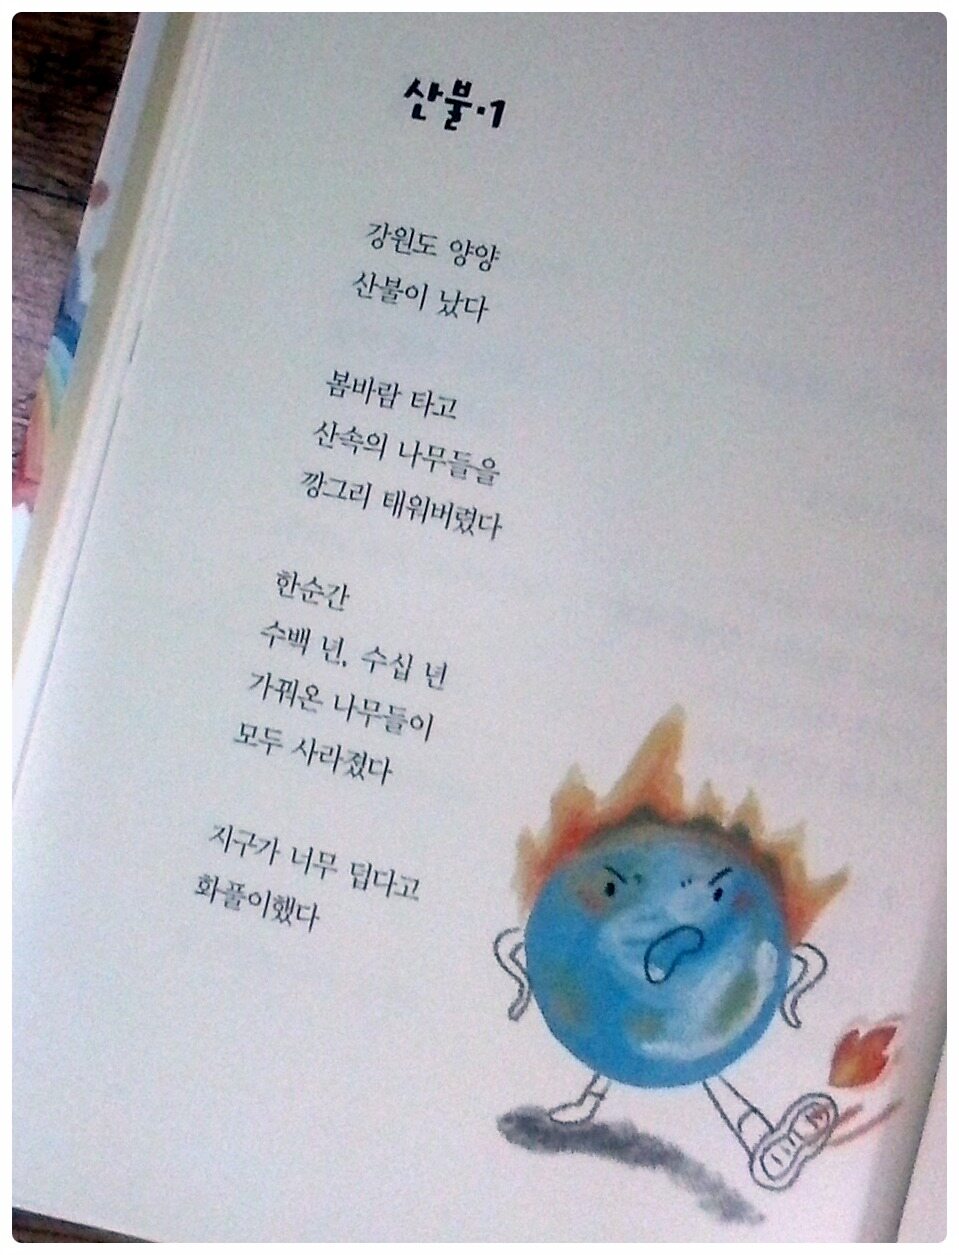 산불·1
강원도 양양
산불이 났다
봄바람 타고
산속의 나무들을
깡그리 태워버렸다
한순간
수백 년, 수십 년
가꿔온 나무들이
모두 사라졌다
지구가 너무 덥다고
화풀이했다